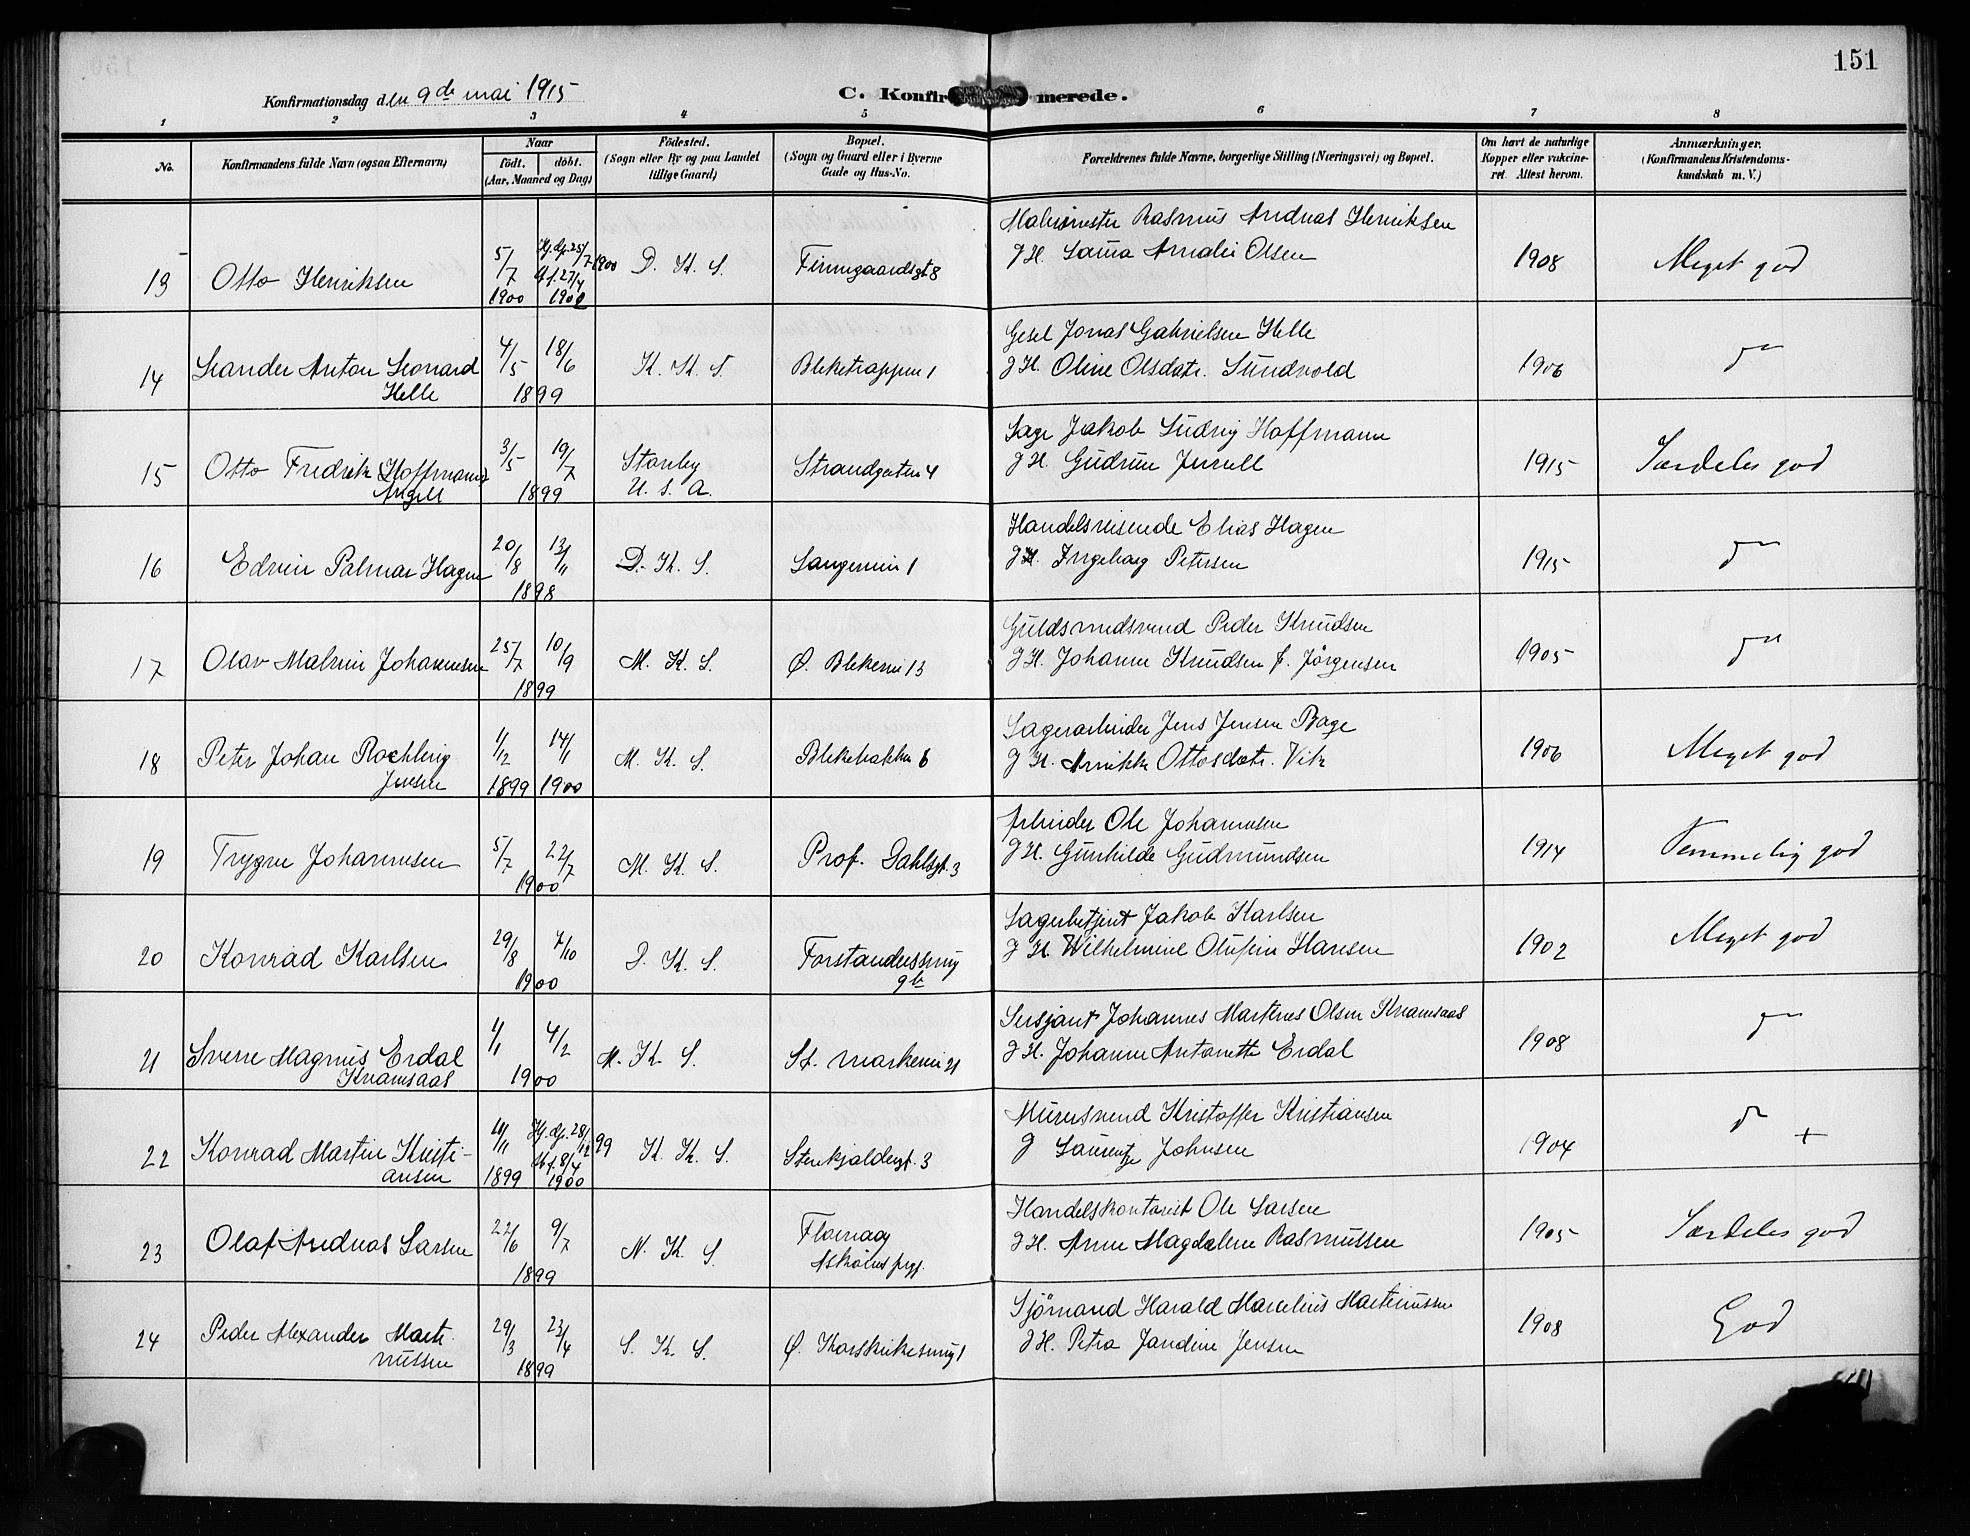 151
Konfirmationsdag den 9de mai 1915
C. Konfirmerede.
1 2 3 4 5 6 7 8
No.
Konfirmandens fulde Navn (ogsaa Efternavn)
Naar
födt. döbt.
(Aar, Maaned og Dag)
Födested.
(Sogn eller By og paa Landet
tillige Gaard)
Bopæl.
(Sogn og Gaard eller i Byerne
Gade og Hus-No.
Forældrenes fulde Navne, borgerlige Stilling (Næringsvei) og Bopæl.
Om havt de naturlige
Kopper eller vakcine-
ret. Attest herom.
Anmærkninger.
(Konfirmandens Kristendoms-
kundskab m. V.)
13 Otto Henriksen 5/7 1900 Hj. dp. 25/7 1900 St. f. 27/4 1902 D. K. S. Finnegaardsgt 8
Malermester Rasmus Andreas Henriksen
J H. Laura Amalie Olsen 1908 Meget god
14 Leander Anton Leonard
Helle 4/5 18/6 1899 K. K. S. Bleketrappen 1
Gesel Jonas Gabrielsen Helle
J H. Oline Olsdatr. Sundvold 1906 do
15 Otto Fredrik Hoffmann
Angell 3/5 19/7 1899 Stanley
U. S. A. Strandgaten 4
Sage Jakob Ludvig Hoffmann
J H. Gudrun 1915 Særdeles god
16 Edvin Palmar Hagen 20/8 13/11 1898 D. K. S. Langevei 1
Handelsreisende Elias Hagen
J H. Ingeborg Petersen 1915 do
17 Olav Malvin Johannesen 25/7 10/9 1899 M. K. S. Ø. Blekevei 13
Guldsmedsvend Peder Knudsen
J H. Johanne Knudsen f. Jörgensen 1905 do
18 Peter Johan Rochling
Jensen 1/12 1899 14/1 1900 M. K. S. Blekebakken 6
Lagerarbeider Jens Jensen Bage
J H. Annikke Ottosdatr. Vik 1906 Meget god
19 Trygve Johannesen 5/7 22/7 1900 M. K. S. Prof. Dahlsgt. 3
Arbeider Ole Johannesen
J H. Gunhilde Gudmundsen 1914 Temmelig god
20 Konrad Karlsen 29/8 7/10 1900 D. K. S. Forstandersmug
9b
Lagerbetjent Jakob Karlsen
J H. Wilhelmine Olufine Hansen 1902 Meget god
21 Sverre Magnus Erdal
Knamsaas 1/1 4/2 1900 M. K. S. St. Markevei 21
Sersjant Johannes Martines Olsen Knamsaas
J H. Johanne Antonette Erdal 1908 do
22 Konrad Martin Kristi-
ansen 11/11 1899 Hj. dp. 28/12 99 St. f. 8/4 1900 K. K. S. Stenkjeldergt. 3
Murersvend Kristoffer Kristiansen
J Laurentze Johnsen 1904 do +
23 Olaf Andreas Larsen 22/6 9/7 1899 N. K. S. Florvaag
Askøens prgj.
Handelskontorist Ole Larsen
J H. Anne Magdalene Rasmussen 1905 Særdeles god
24 Peder Alexander Marti-
nussen 29/3 23/4 1899 S. K. S. Ø. Korskirkesmug 1
Sjömand Harald Marcelius Martinussen
J H. Petra Jandine Jensen 1908 God